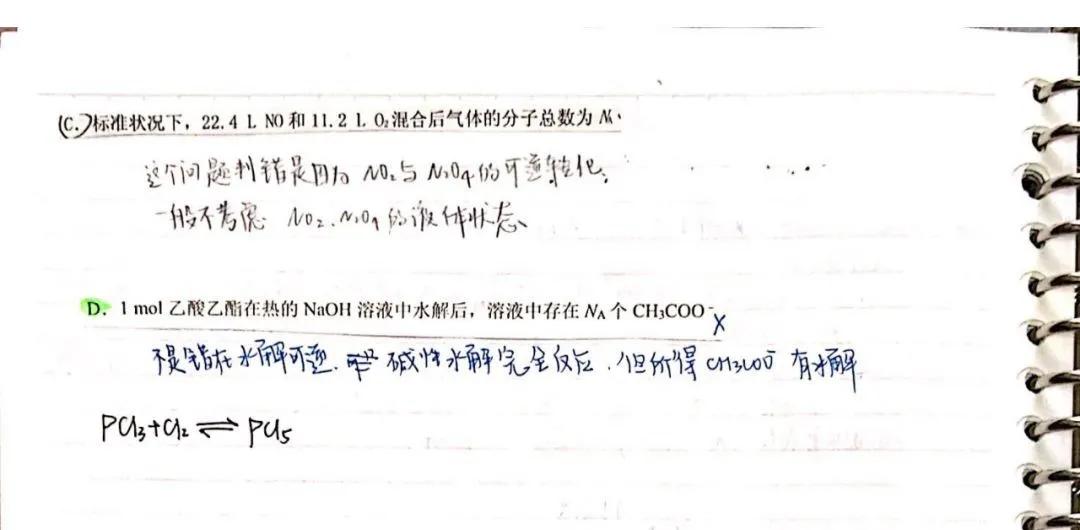 (C.)标准状况下，22.4 L NO和11.2 L O₂混合后气体的分子总数为 Nₐ
这个问题判错是因为 NO₂与N₂O₄的可逆转化，
一般不考虑 NO₂、N₂O₄的液体状态、
D. 1 mol 乙酸乙酯在热的 NaOH 溶液中水解后，溶液中存在 Nᴀ 个 CH₃COO⁻ ×
不是错在水解可逆. 碱性水解完全反应. 但所得 CH3COO⁻ 有水解
PCl₃+Cl₂ ⇌ PCl₅